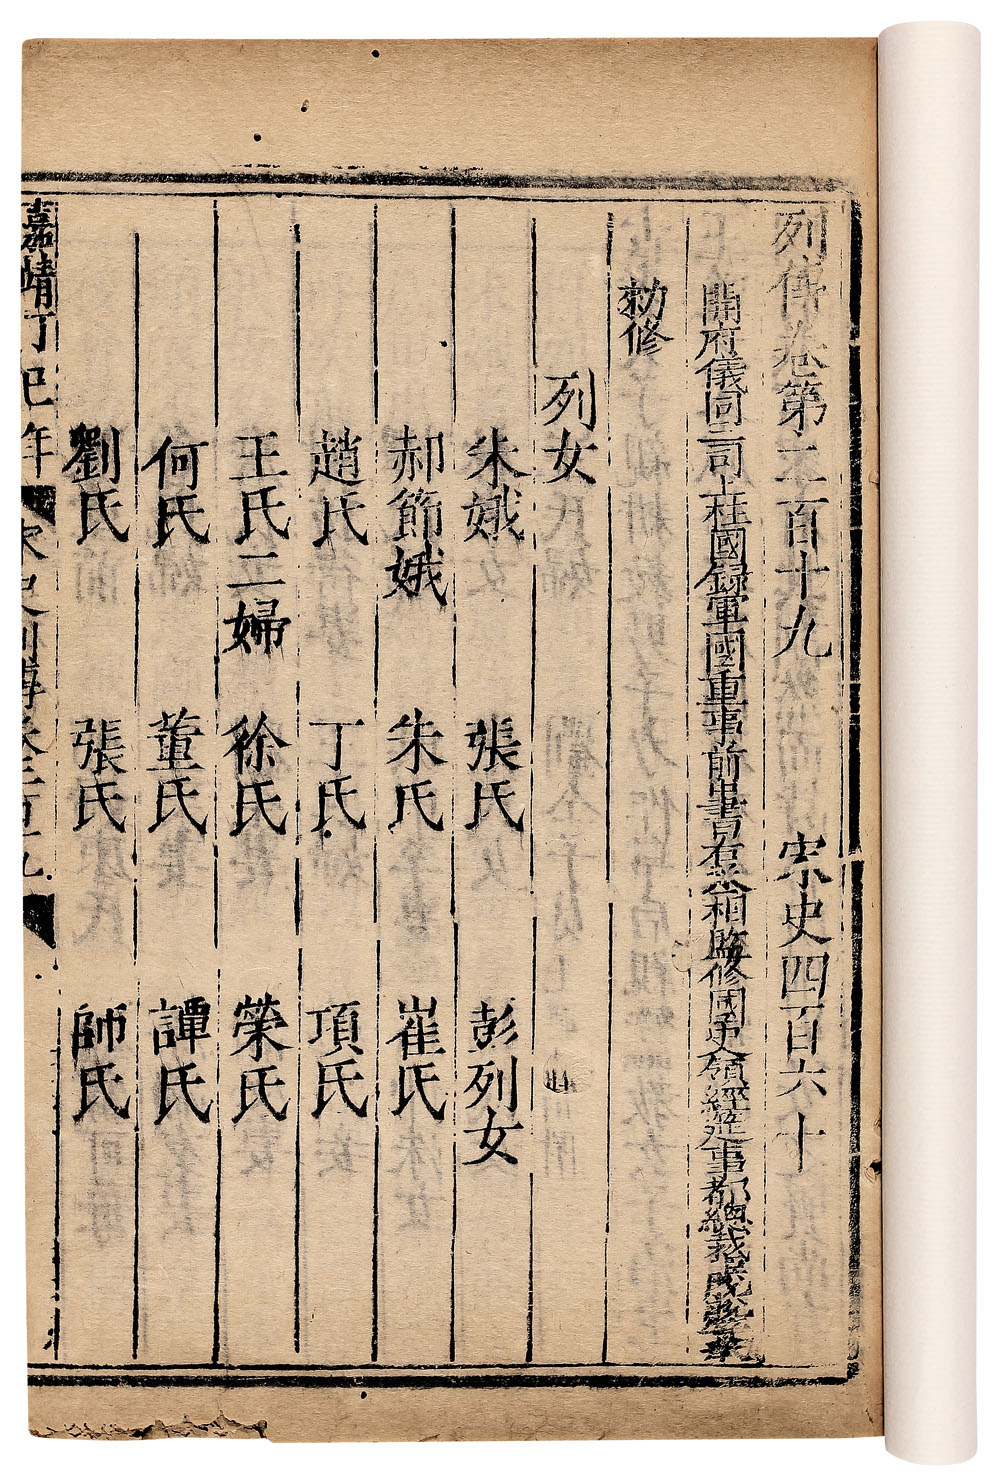 列傳卷第二百十九 宋史四百六十
開府儀同三司上柱國録軍國重事前中書右丞相監修國史領經筵事都總裁脱脱等奉
勑修
列女
朱娥 張氏 彭列女
郝節娥 朱氏 崔氏
趙氏 丁氏 項氏
王氏二婦 徐氏 榮氏
何氏 董氏 譚氏
劉氏 張氏 師氏
嘉靖丁巳年 宋史列傳卷二百十九